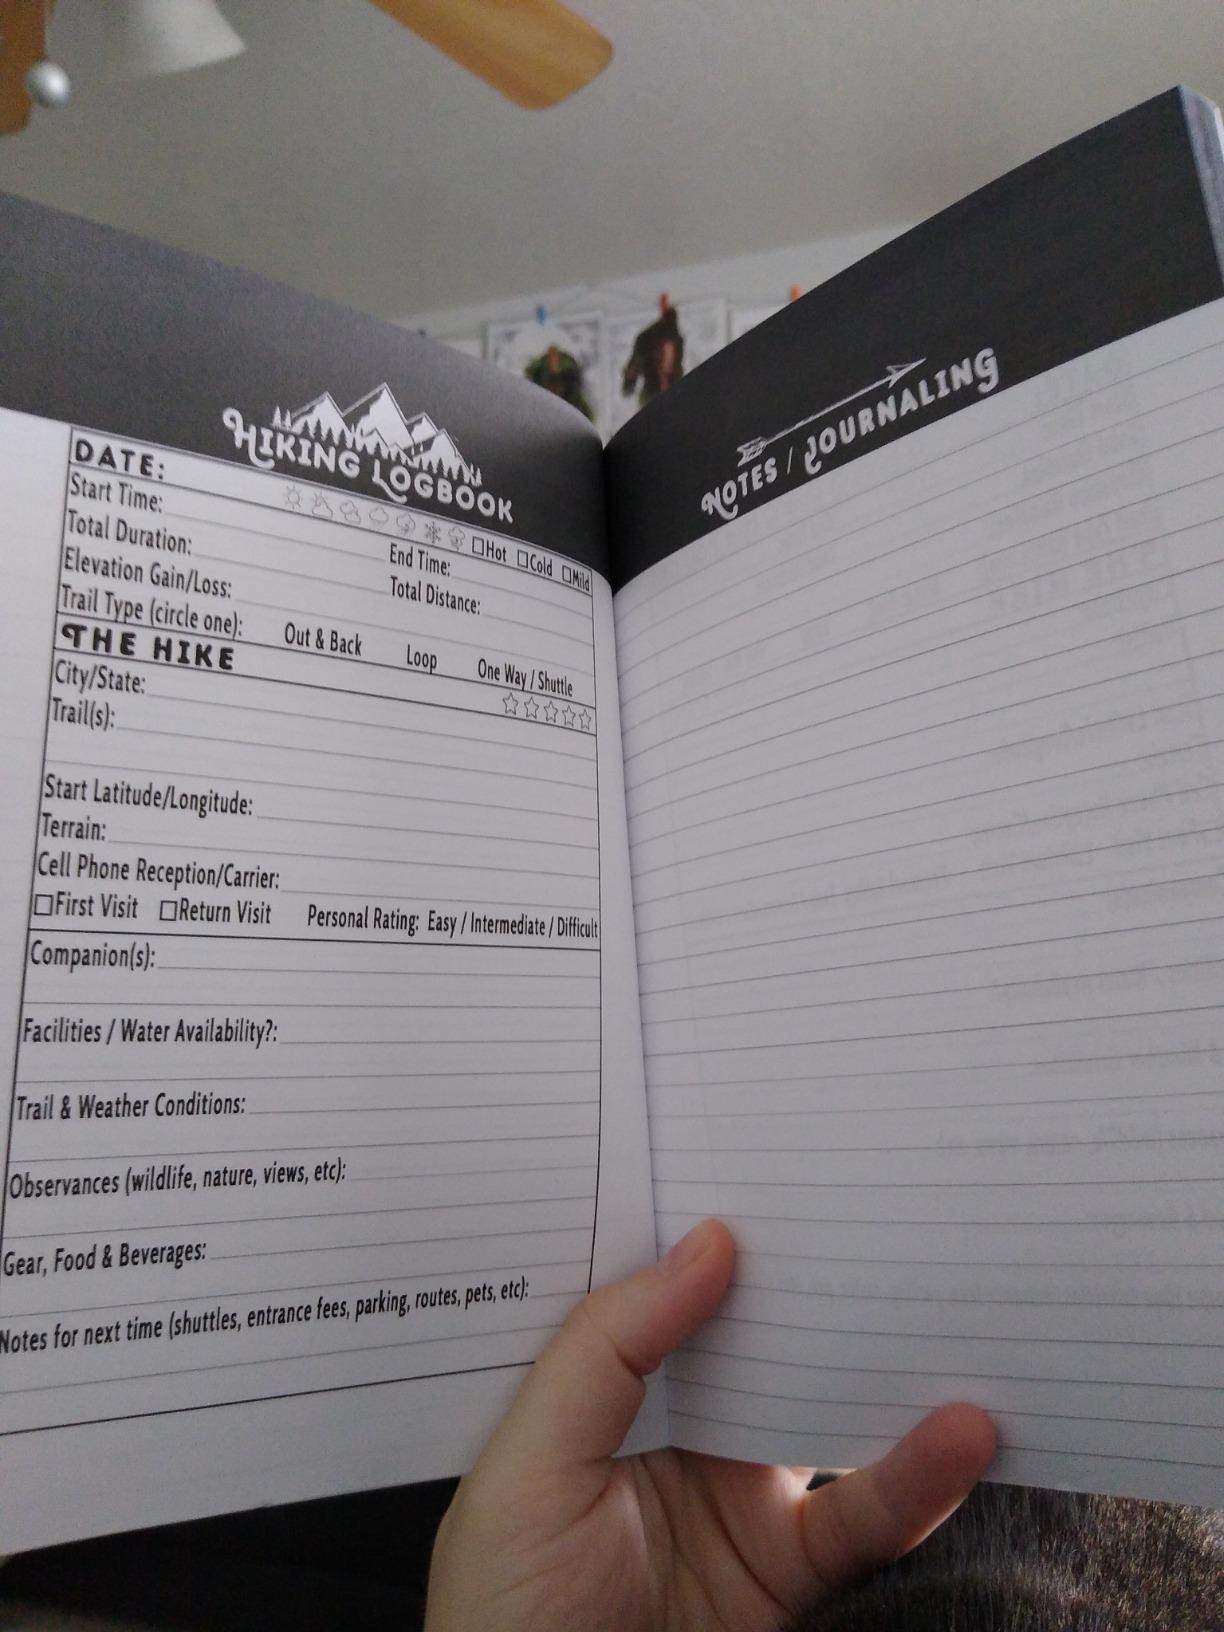 HIKING LOGBOOK
DATE:
☐Hot ☐Cold ☐Mild
Start Time:
End Time:
Total Duration:
Total Distance:
Elevation Gain/Loss:
Trail Type (circle one): Out & Back Loop One Way / Shuttle
THE HIKE
City/State:
Trail(s):
Start Latitude/Longitude:
Terrain:
Cell Phone Reception/Carrier:
☐First Visit ☐Return Visit Personal Rating: Easy / Intermediate / Difficult
Companion(s):
Facilities / Water Availability?:
Trail & Weather Conditions:
Observances (wildlife, nature, views, etc):
Gear, Food & Beverages:
Notes for next time (shuttles, entrance fees, parking, routes, pets, etc):
NOTES / JOURNALING